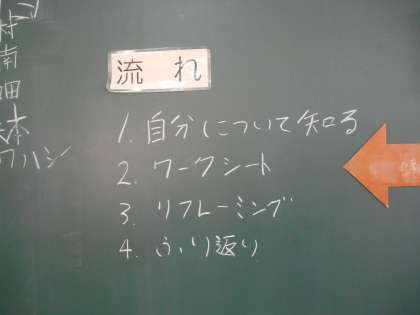 流れ
1. 自分について知る
2. ワークシート
3. リフレーミング
4. ふり返り
村
南
畑
本
ハシ